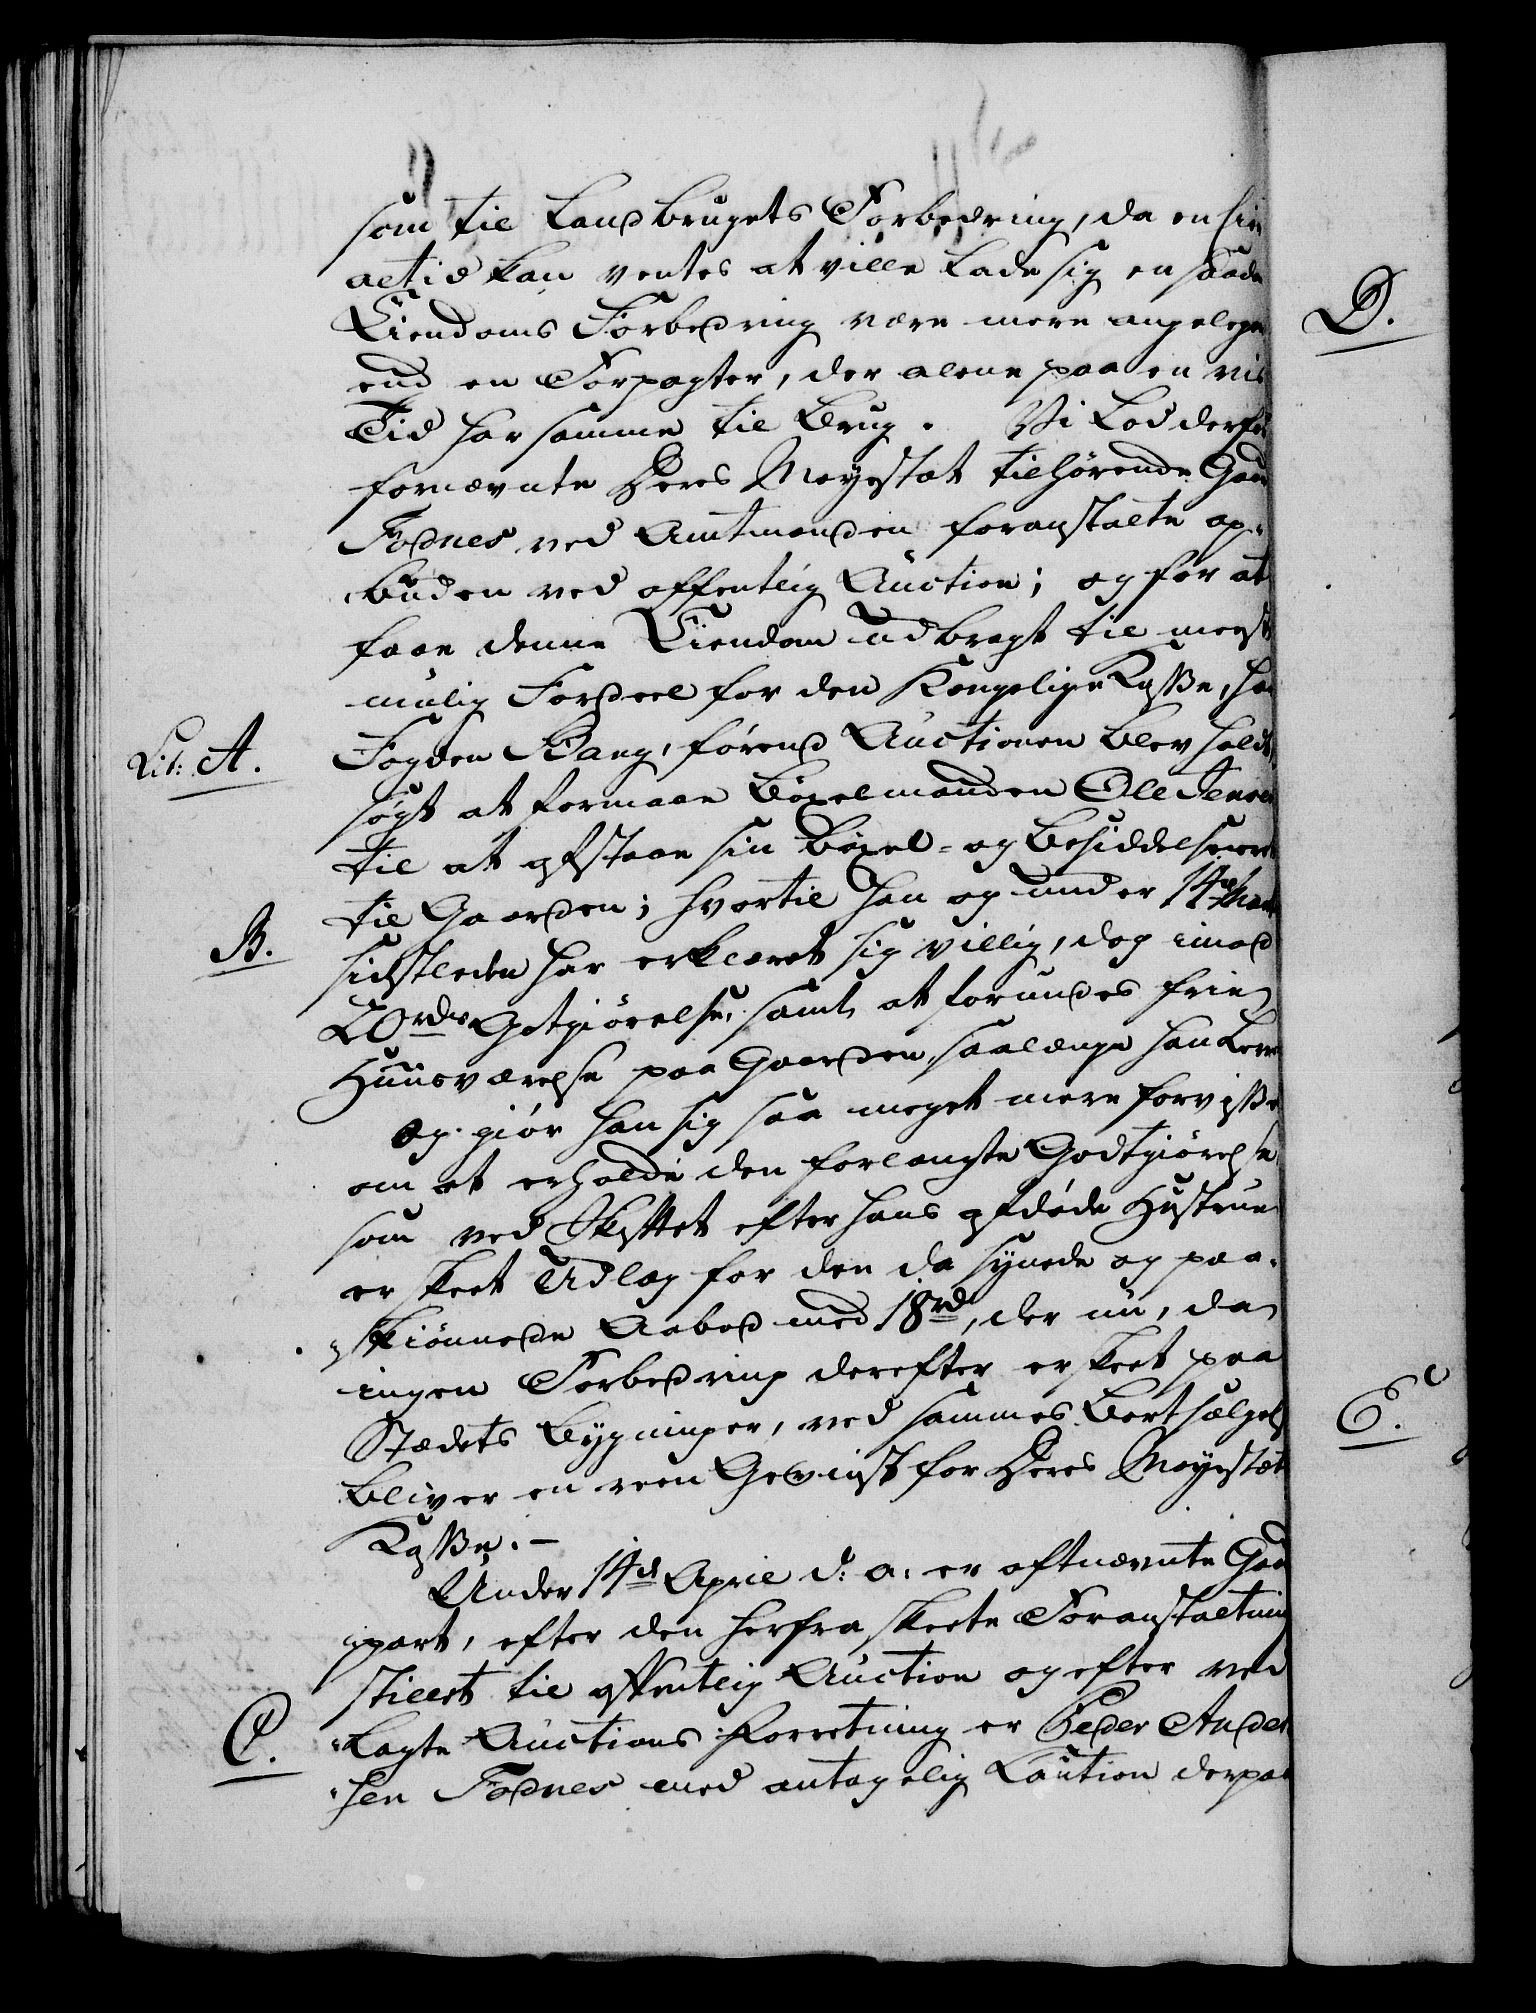 som til Landbrugets Forbedring, da en
altid kan ventes at ville lade sig en saadan
Eiendoms Forbedring være mere angelegen
end en Forpagter, der alene paa en vis
Tid har samme til Brug. Vi lod derfor
fornævnte Deres Mayestæt tilhørende Gaard
Fodnes ved Amtmanden foranstalte op-
buden ved offentlig Auction; og for at
faae denne Eiendom udbragt til meest
mulig Fordeel for den Kongelige Kasse, har
Lit: A.
Fogden Bang, førend Auctionen blev holdt,
søgt at formaae Böxelmanden Ole Jensen
til at afstaae sin Böxel- og Besiddelsesret
til Gaarden; hvortil han og under 14de
B.
sidstleden har erklæret sig villig, dog imod
20 rdrs Godtgiörelse, samt at forundes frie
Huusværelse paa Gaarden, saalænge han lever
og giör han sig saa meget mere forvisset
om at erholde den forlangte Godtgiörelse,
som ved Skiftet efter hans afdøde Hustrue
er skeet Udlæg for den da synede og paa-
skiönnede Aabod med 18 rd, der nu, da
ingen Forbedring derefter er skeet paa
Stædets Bygninger, ved sammes Bortsælgelse
bliver en reen Gevinst for Deres Mayestæts
Kasse. -
Under 14de April d: a: er oftnævnte Gaar-
part, efter den herfra skeete Foranstaltning
stillet til offentlig Auction og efter ved
C.
lagte Auctions-Forretning er Peder Ander-
sen Fodnes med antagelig Caution derpaa
D.
E.